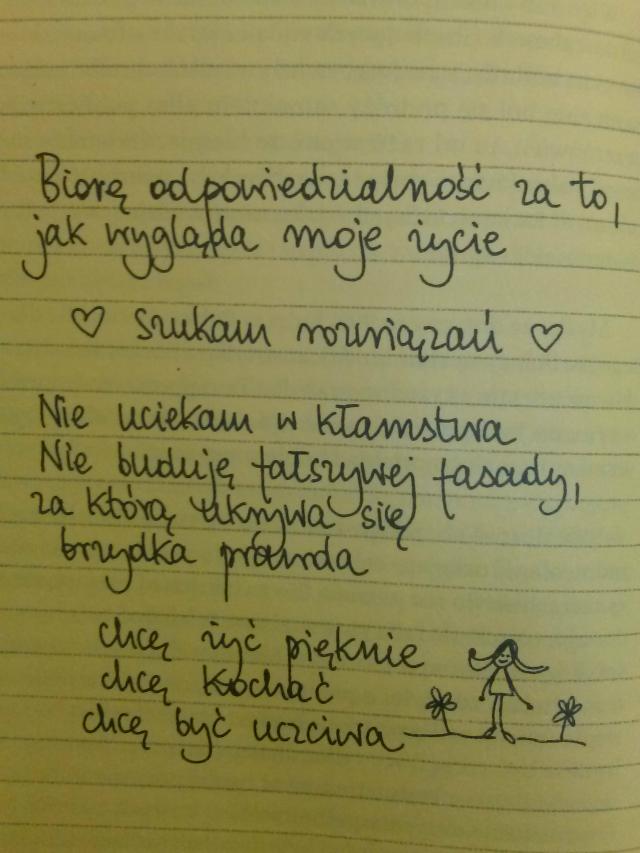 Biorę odpowiedzialność za to,
jak wygląda moje życie
♡ szukam rozwiązań ♡
Nie uciekam w kłamstwa
Nie buduję fałszywej fasady,
za którą ukrywa się
brzydka prawda
chcę żyć pięknie
chcę kochać
chcę być uczciwa